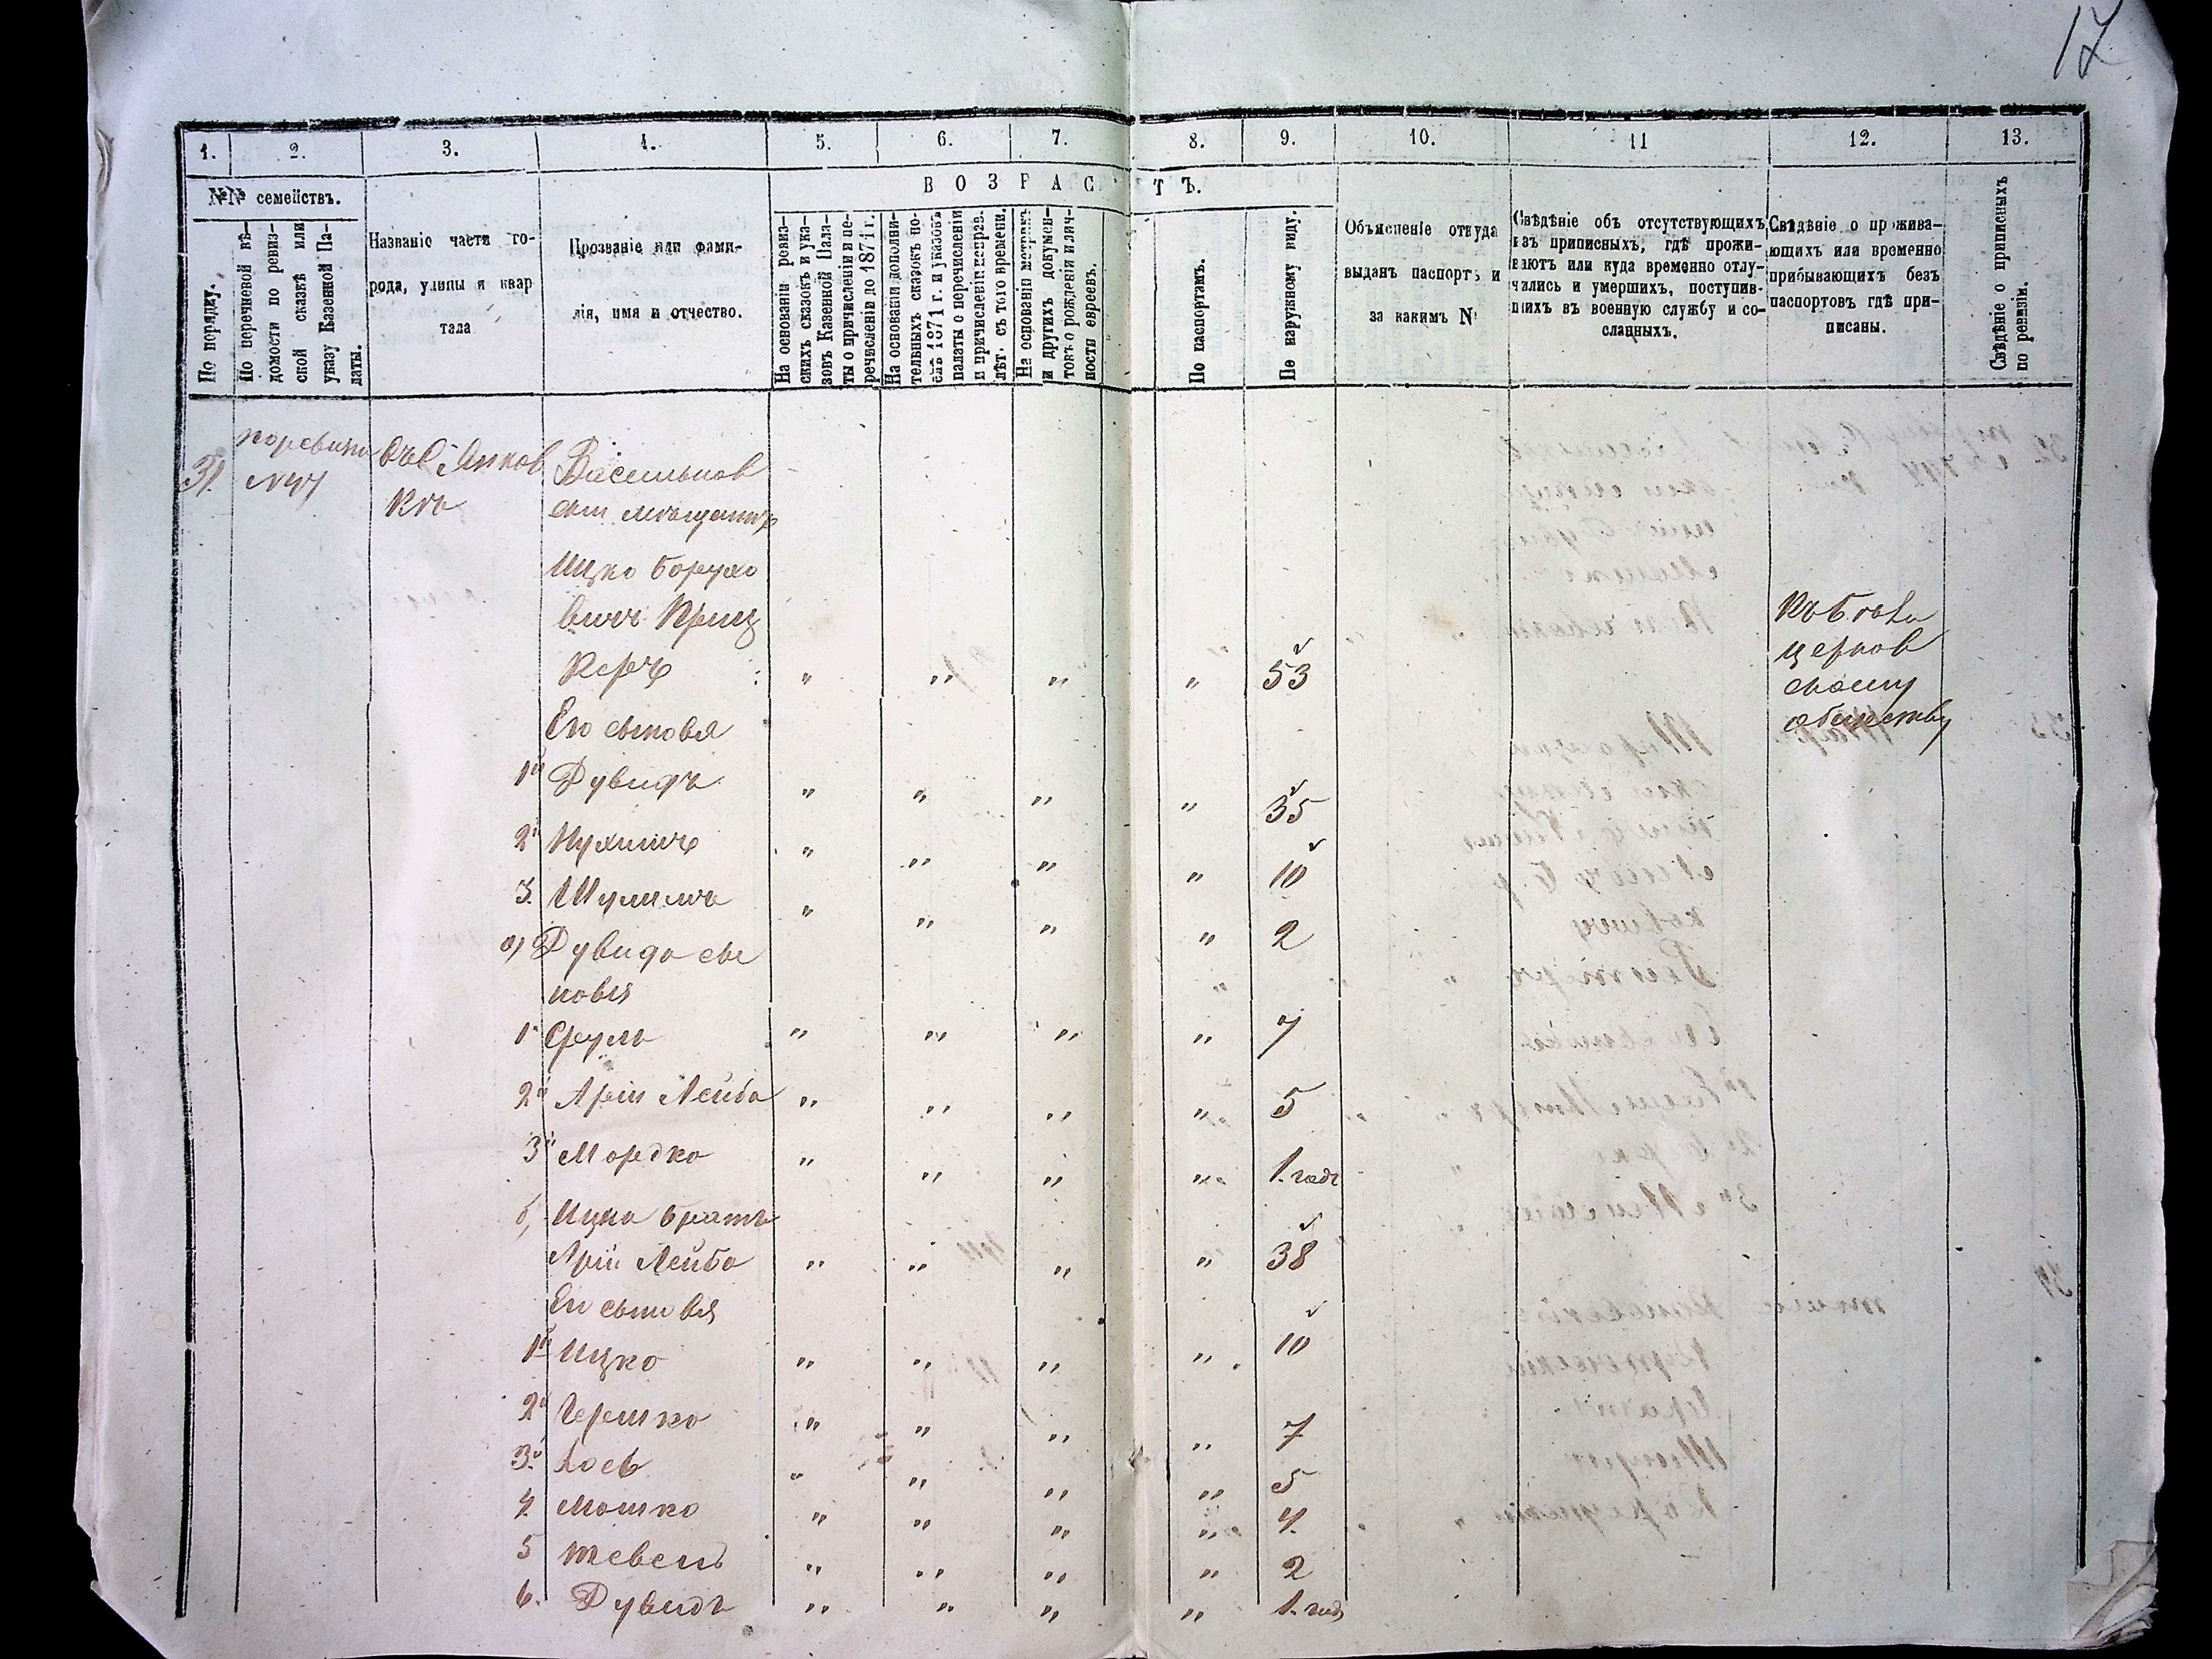 17
1. 2. 3. 4. 5. 6. 7. 8. 9. 10. 11 12. 13.
№№ семействъ.
ВОЗРАСТЪ.
По порядку.
По перечневой вѣ-
домости по ревиз-
ской сказкѣ или
указу Казенной Па-
латы.
Названіе части го-
рода, улицы и квар
тала
Прозваніе или фами-
лія, имя и отчество.
На основаніи ревиз-
скихъ сказокъ и ука-
зовъ Казенной Пала-
ты о причисленіи и пе-
речисленіи до 1871 г.
На основаніи дополни-
тельныхъ сказокъ по-
слѣ 1871 г. и указовъ
палаты о перечисленіи
и причисленіи неправ.
лѣт. съ того времени.
На основаніи метрикъ
и другихъ докумен-
товъ о рожденіи и лич-
ности евреевъ.
По паспортамъ.
По наружному виду.
Объясненіе откуда
выданъ паспортъ и
за какимъ №
Свѣдѣніе объ отсутствующихъ
изъ приписныхъ, гдѣ прожи-
ваютъ или куда временно отлу-
чились и умершихъ, поступив-
шихъ въ военную службу и со-
сланныхъ.
Свѣдѣніе о прожива-
ющихъ или временно
прибывающихъ безъ
паспортовъ гдѣ при-
писаны.
Свѣдѣніе о приписныхъ
по ревизіи.
31. Въ С. Янков Васильков
кѣ скій мѣщанинъ
Ицко Борухо
вичъ Криц
керъ " " " " 53
Къ Бѣло
церков
скому
обществу
Его сыновья
1й Дувидъ " " " " 35
2й Нухимъ " " " " 10
3. Шулимъ " " " " 2
а) Дувида сы
новья
1. Сруль " " " " 7
2й Арій Лейба " " " " 5
3й Мордко " " " " 1. годъ
б, Ицка братъ
Арій Лейба " " " " 38
Его сыновья
1й Ицко " " " " 10
2й Гершко " " " " 7
3й Іосъ " " " " 5
4. Мошко " " " " 4.
5 Тевель " " " " 2
6. Дувидъ " " " " 1. годъ